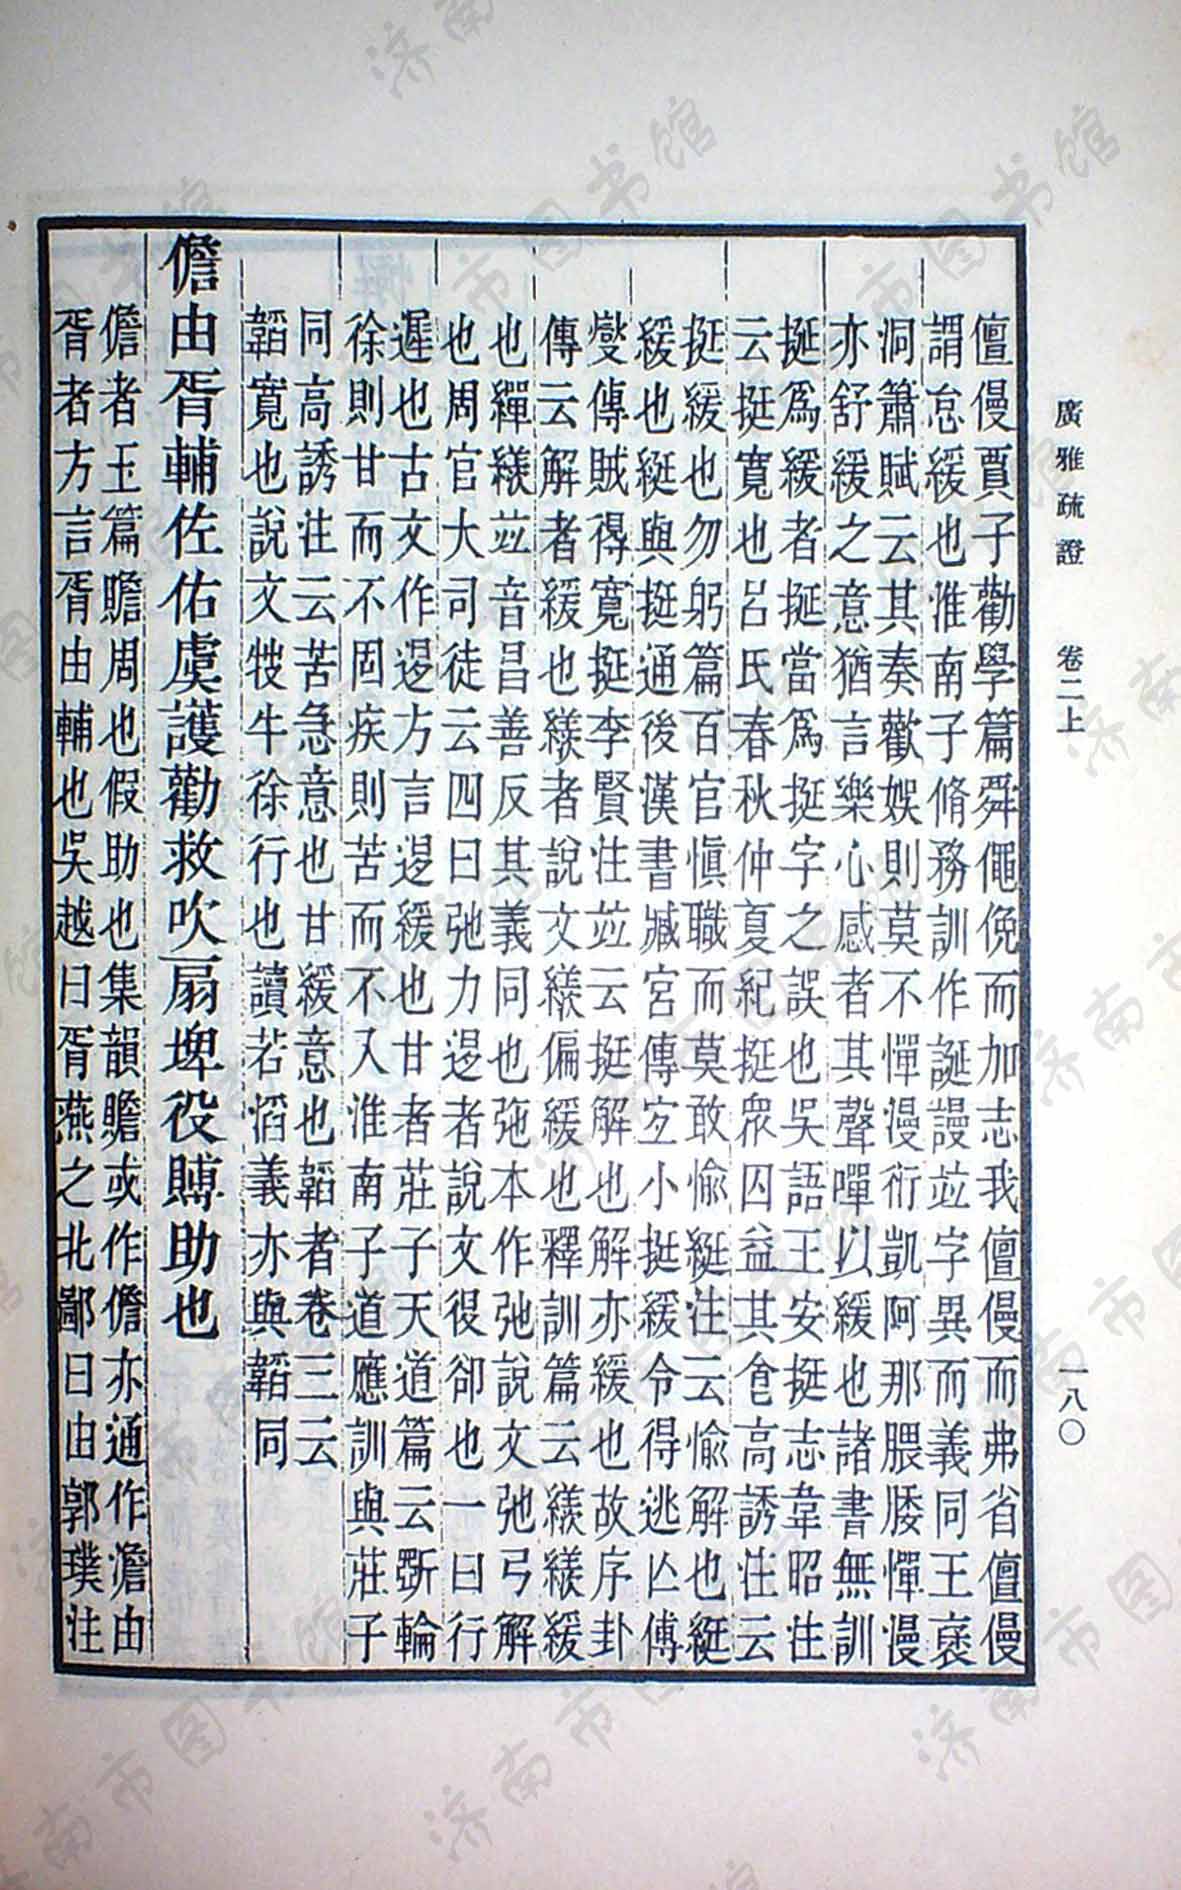 廣雅疏證　卷二上　一八〇
儃僈賈子勸學篇舜僶俛而加志我儃僈而弗省儃僈
謂怠緩也淮南子脩務訓作誕謾竝字異而義同王褒
洞簫賦云其奏歡娛則莫不憚漫衍凱阿那腲腇憚漫
亦舒緩之意猶言樂心感者其聲嘽以緩也諸書無訓
挻爲緩者挻當爲挺字之誤也吳語王安挺志韋昭注
云挺寬也呂氏春秋仲夏紀挺眾囚益其食高誘注云
挺緩也勿躬篇百官愼職而莫敢愉綎注云愉解也綎
緩也綎與挺通後漢書臧宮傳宜小挺緩令得逃亡傅
燮傳賊得寬挺李賢注竝云挺解也解亦緩也故序卦
傳云解者緩也繟者說文繟偏緩也釋訓篇云繟繟緩
也繟繟竝音昌善反其義同也弛本作弛說文弛弓解
也周官大司徒云四曰弛力遈者說文㣪卻也一曰行
遲也古文作遈方言遈緩也甘者莊子天道篇云斲輪
徐則甘而不固疾則苦而不入淮南子道應訓與莊子
同高誘注云苦急意也甘緩意也韜者卷三云
韜寬也說文㹎牛徐行也讀若滔義亦與韜同
儋由胥輔佐佑虞護勸救吹扇埤役賻助也
儋者玉篇贍周也假助也集韻贍或作儋亦通作澹由
胥者方言胥由輔也吳越曰胥燕之北鄙曰由郭璞注